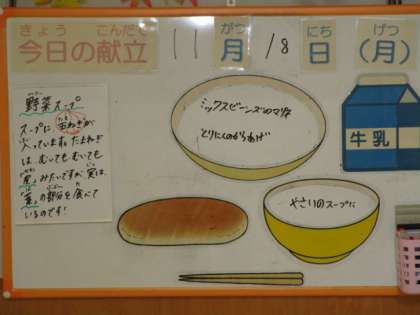 きょう こんだて がつ にち げつ
今日の献立 11月18日(月)
野菜スープ
スープに 玉ねぎが
入っています。たまねぎ
は むいても むいても
「皮」みたいですが、実は、
「葉」の部分を 食べて
いるのです!
ミックスビーンズのマリネ
とりにくのからあげ
牛乳
やさいのスープに